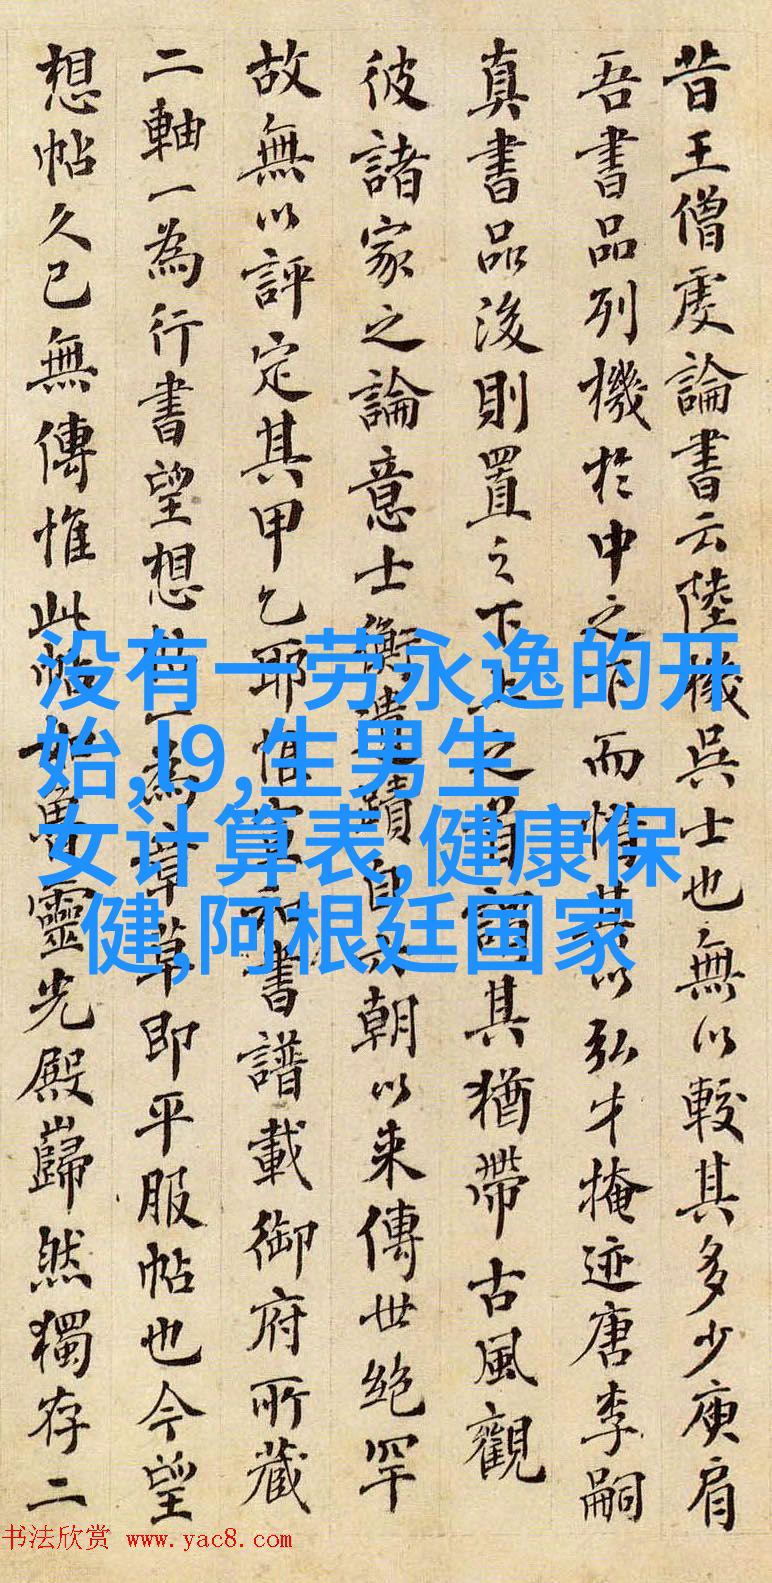 昔王僧虔論書云陸機吳士也無以較其多少庾肩
吾書品列機於中之下而惜其以弘才掩迹唐李嗣
真書品後則置之下上之首謂其猶帶古風觀
彼諸家之論意士衡遺蹟自六朝以来傳世絶罕
故無以評定其甲乙耶惟宣和書譜載御府所藏
二軸一為行書望想帖一為章草即平服帖也今望
想帖久已無傳惟此帖如魯靈光殿巋然獨存二
没有一劳永逸的开
始,l9,生男生
女计算表,健康保
健,阿根廷国家
书法欣赏 www.yac8.com